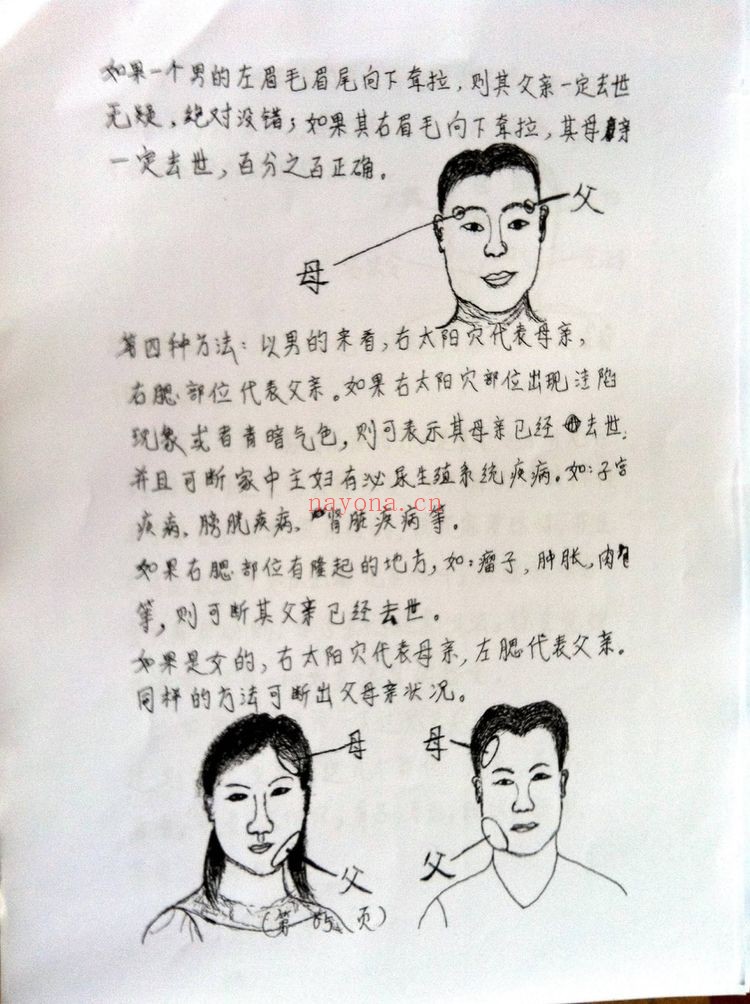 如果一个男的左眉毛眉尾向下耷拉，则其父亲一定去世
无疑，绝对没错；如果其右眉毛向下耷拉，其母亲
一定去世，百分之百正确。
父
母
第四种方法：以男的来看，右太阳穴代表母亲，
右腮部位代表父亲。如果右太阳穴部位出现洼陷
现象或者青暗气色，则可表示其母亲已经去世；
并且可断家中主妇有泌尿生殖系统疾病。如：子宫
疾病、膀胱疾病、肾脏疾病等。
nayona.cn
如果右腮部位有隆起的地方，如：瘤子，肿胀，肉包
等，则可断其父亲已经去世。
如果是女的，右太阳穴代表母亲，左腮代表父亲。
同样的方法可断出父母亲状况。
母 母
父 父
(第 65 页)